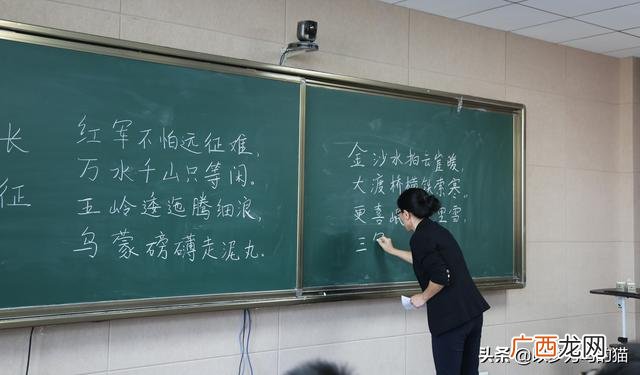 长征
红军不怕远征难，
万水千山只等闲。
五岭逶迤腾细浪，
乌蒙磅礴走泥丸.
金沙水拍云崖暖，
大渡桥横铁索寒。
更喜岷里雪，
三
头条 的猫
广西龙网